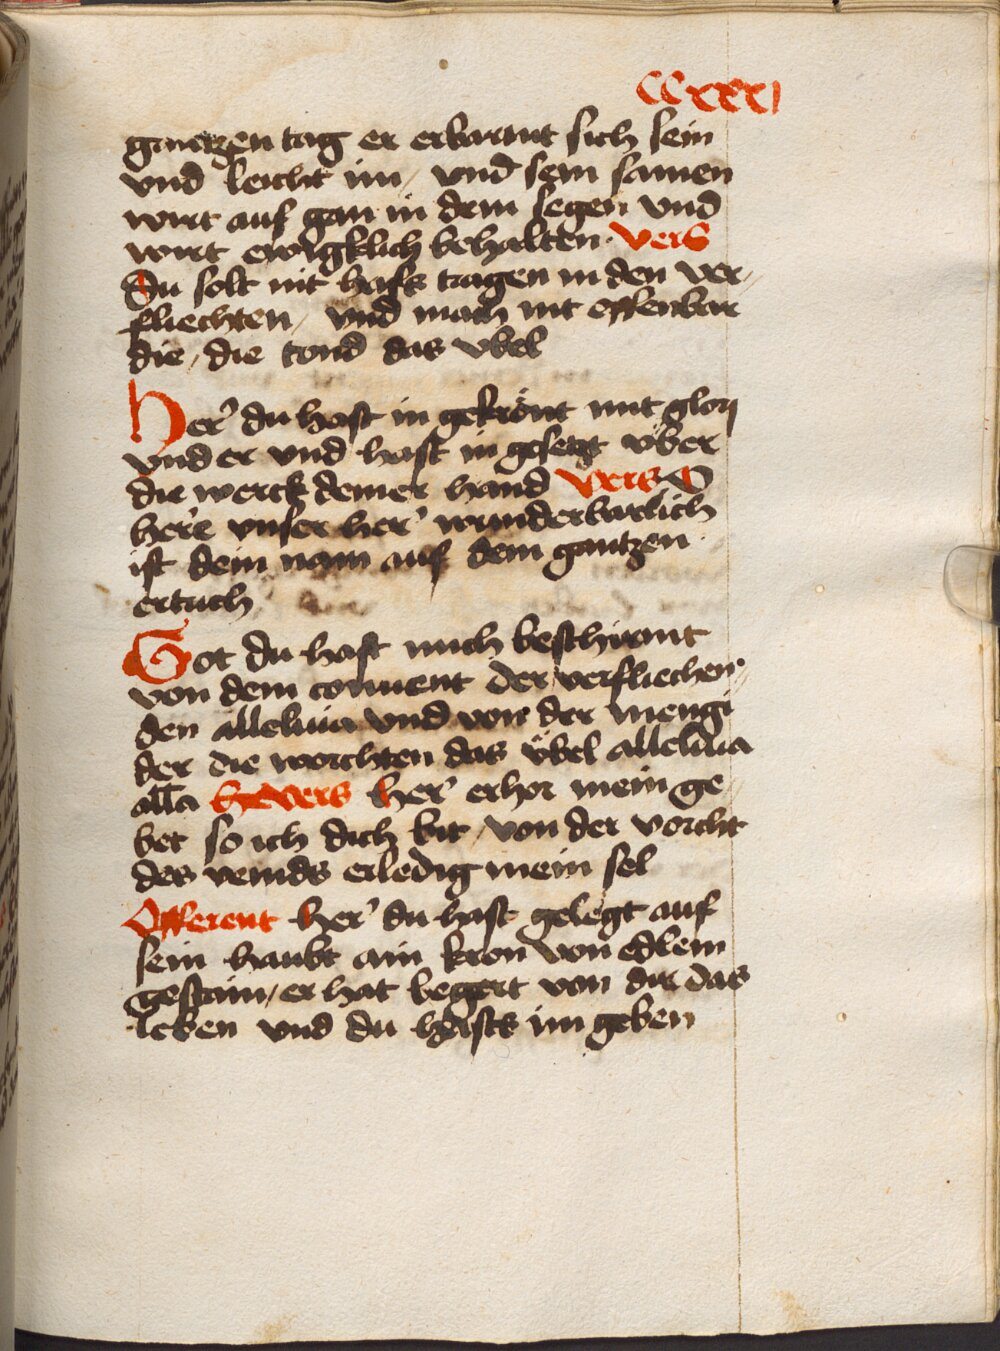 CCxxxi
gantzen tag er erbarmt sich sein
vnd leicht im / vnd sein samen
wirt auf gan in dem segen vnd
wirt ewigklich behalten · Vers
Du solt nit hass tragen in den ver⸗
fliechten / vnd mach nit offenbar
die / die tond das vbel
Her' du hast in gekrönt mit glory
vnd er vnd hast in gesetzt v̈ber
die werck deiner hand Vers O
here vnser her' wunderbarlich
ist dein nam auf dem gantzen
ertrich
Got du hast mich beschirmt
von dem conuent der verfliechen⸗
den alleluia vnd von der mengi
der die worchten das v̈bel alleluia
alla Vers her' erhor mein ge⸗
bet so ich dich bit / von der vorcht
des veinds erledig mein sel
Offerent her' du hast gelegt auf
sein haubt ain kron von edlem
gestain / er hat begert von dir das
leben vnd du hasts im geben